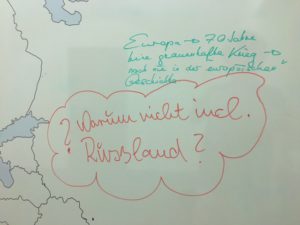 Europa → 70 Jahre
keine grauenhafte Krieg →
noch nie in der europäischen
Geschichte
? Warum nicht incl.
Russland?